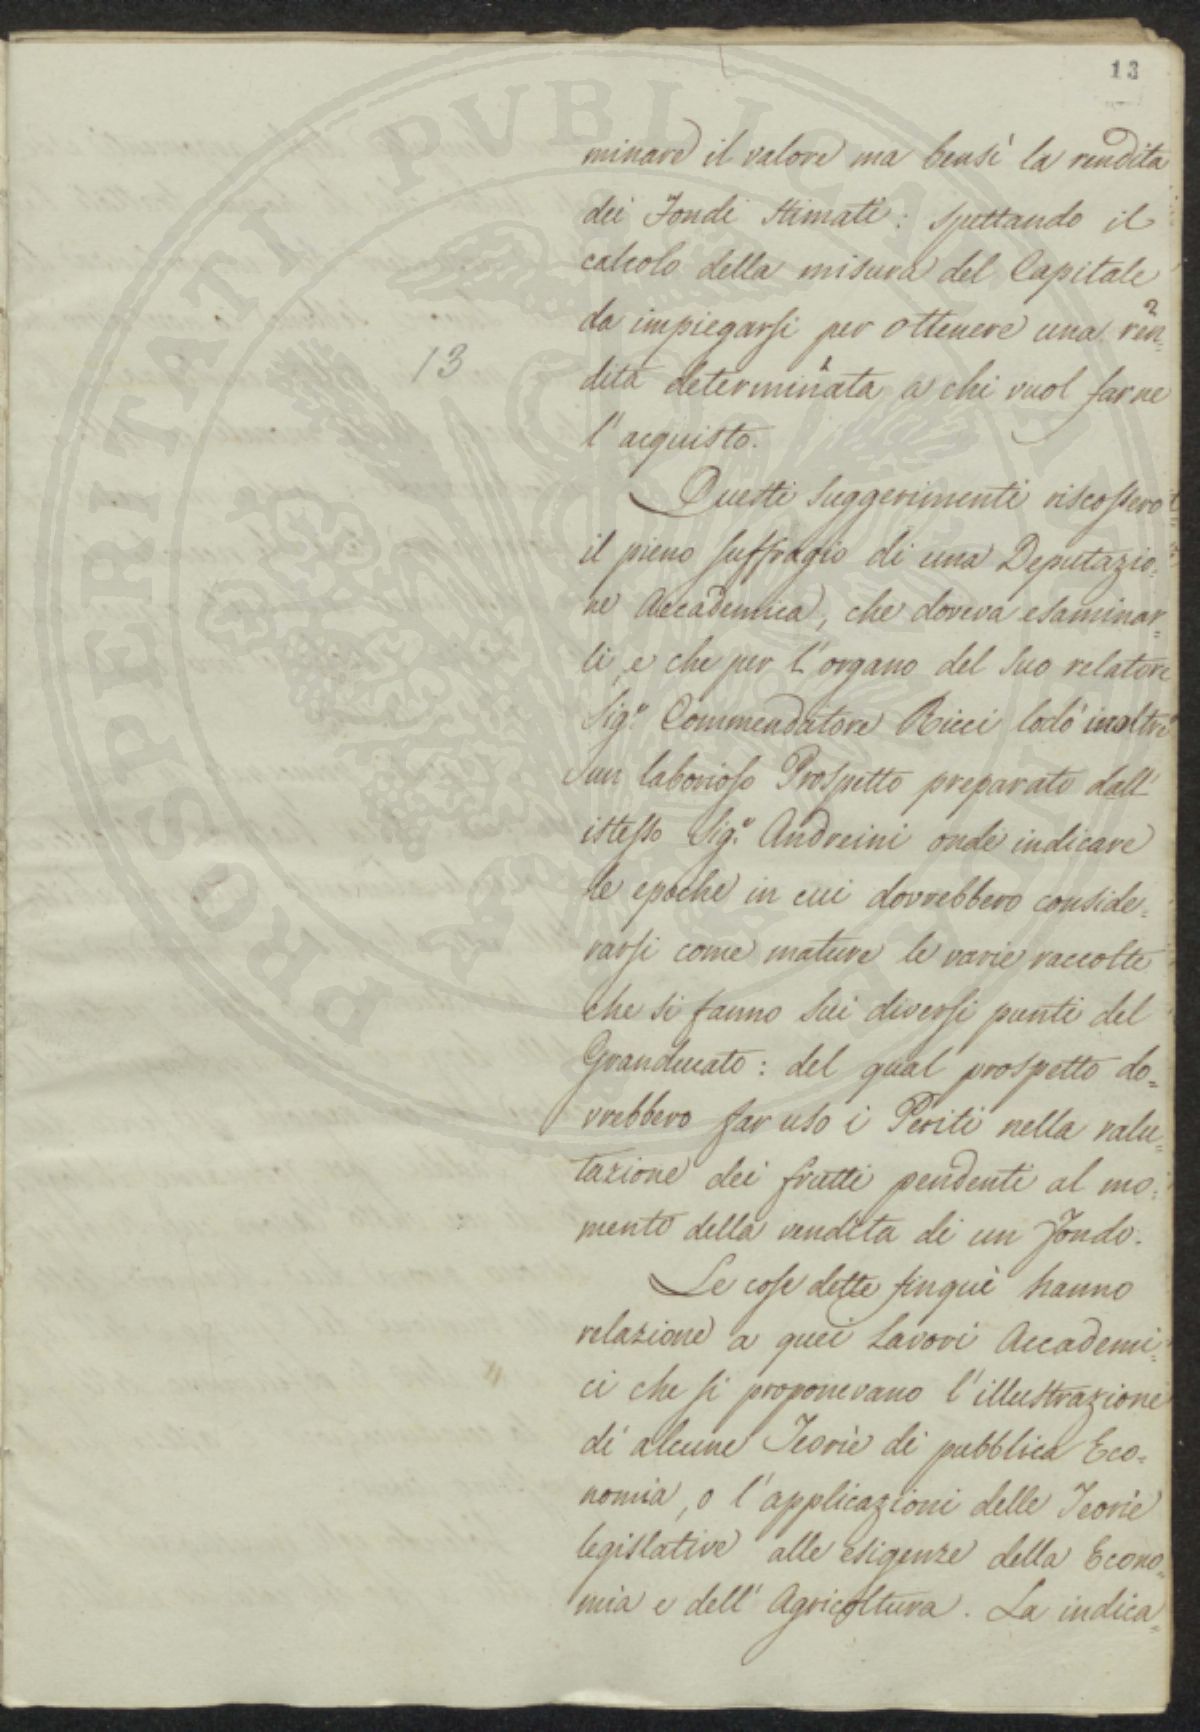 13
minare il valore ma bensì la rendita
dei Fondi stimati: spettando il
calcolo della misura del Capitale
da impiegarsi per ottenere una ren=
dita determinata a chi vuol farne
l'acquisto.
Questi suggerimenti riscossero
il pieno suffragio di una Deputazio=
ne Accademica, che doveva esaminar=
li, e che per l'organo del suo relatore
Sig.r Commendatore Ricci lodò inoltre
un laborioso Prospetto preparato dall'
istesso Sig.r Andreini onde indicare
le epoche in cui dovrebbero conside=
rarsi come mature le varie raccolte
che si fanno sui diversi punti del
Granducato: del qual prospetto do=
vrebbero far uso i Periti nella valu=
tazione dei frutti pendenti al mo=
mento della vendita di un Fondo.
Le cose dette finquì hanno
relazione a quei Lavori Accademi=
ci che si proponevano l'illustrazione
di alcune Teorie di pubblica Eco=
nomia, o l'applicazioni delle Teorie
legislative alle esigenze della Econo=
mia e dell'Agricoltura. La indica=
13
PROSPERITATI PVBLICAE AVGENDAE